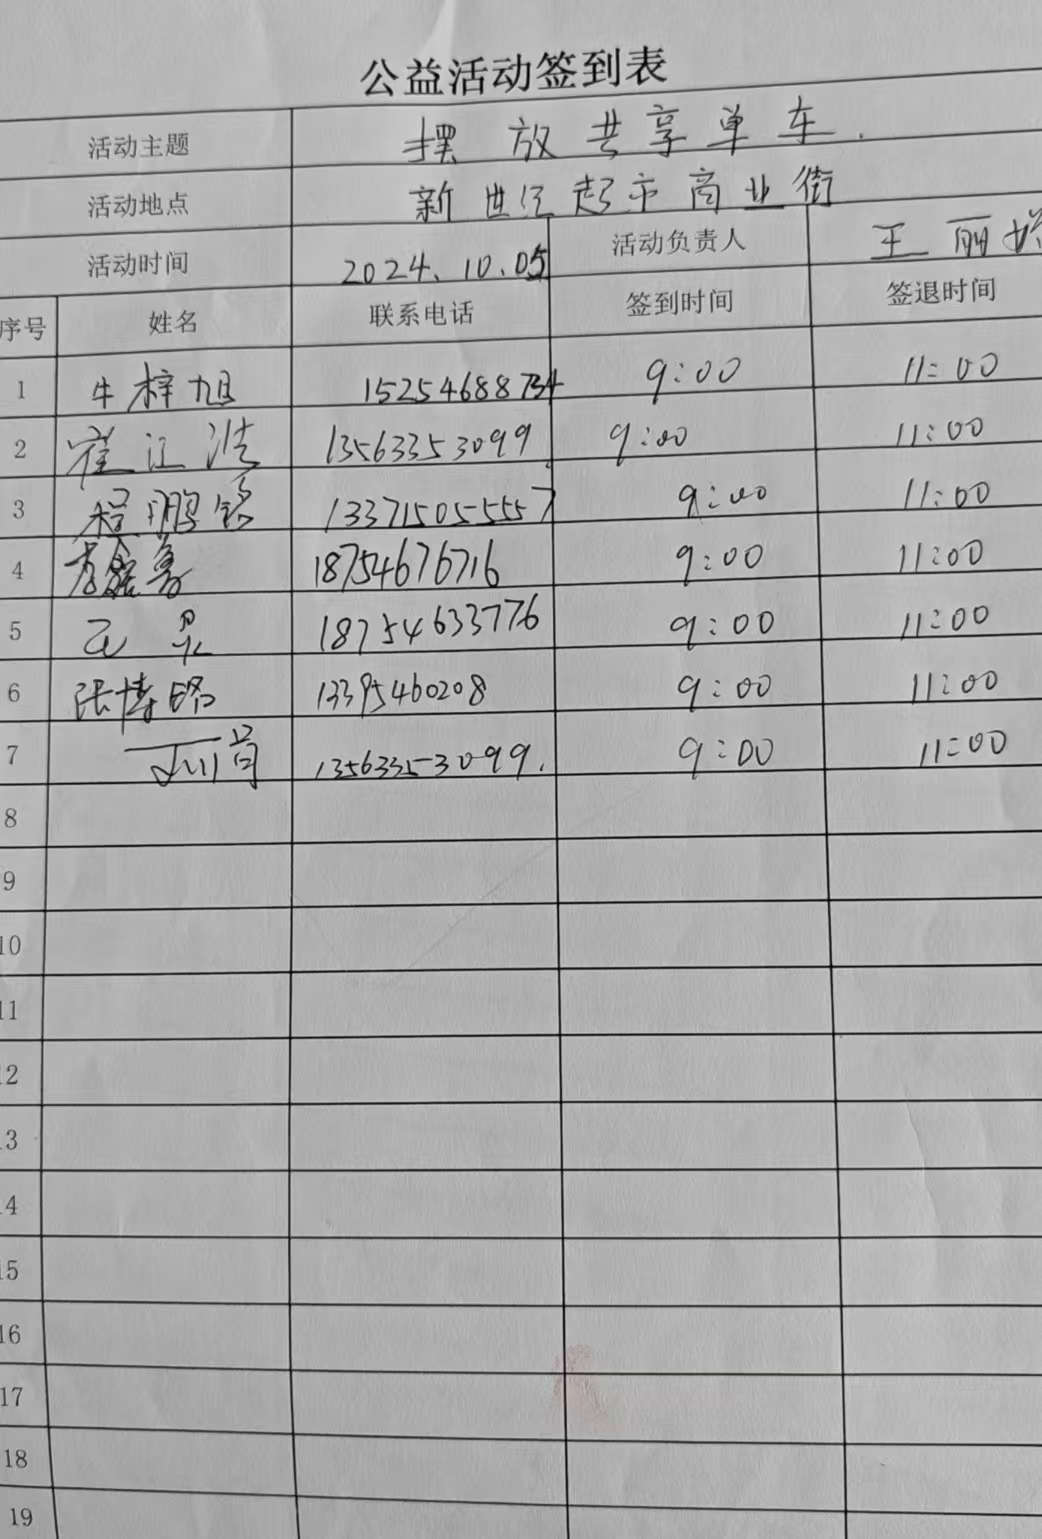 公益活动签到表
活动主题 摆放共享单车.
活动地点 新世纪超市商业街
活动时间 2024.10.05 活动负责人 王丽
序号 姓名 联系电话 签到时间 签退时间
1 牛梓旭 15254688734 9:00 11:00
2 崔江浩 13563353099 9:00 11:00
3 程鹏 13371505557 9:00 11:00
4 18754676716 9:00 11:00
5 18754633776 9:00 11:00
6 张博 13395460208 9:00 11:00
7 13563353099. 9:00 11:00
8
9
10
11
12
13
14
15
16
17
18
19